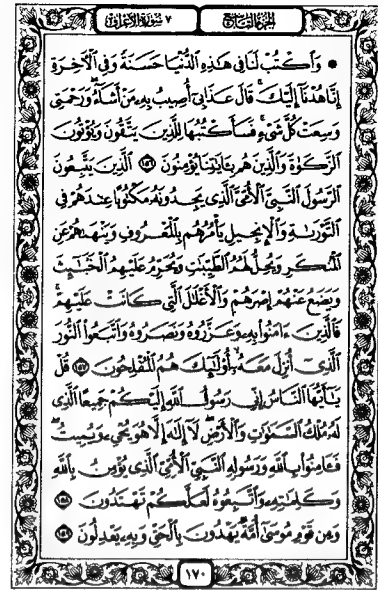 ٧ سورة الأعراف
الجزء التاسع
۞ وَٱكْتُبْ لَنَا فِى هَٰذِهِ ٱلدُّنْيَا حَسَنَةً وَفِى ٱلْءَاخِرَةِ
إِنَّا هُدْنَآ إِلَيْكَ ۚ قَالَ عَذَابِىٓ أُصِيبُ بِهِۦ مَنْ أَشَآءُ ۖ وَرَحْمَتِى
وَسِعَتْ كُلَّ شَىْءٍ ۚ فَسَأَكْتُبُهَا لِلَّذِينَ يَتَّقُونَ وَيُؤْتُونَ
ٱلزَّكَوٰةَ وَٱلَّذِينَ هُم بِـَٔايَٰتِنَا يُؤْمِنُونَ ١٥٦ ٱلَّذِينَ يَتَّبِعُونَ
ٱلرَّسُولَ ٱلنَّبِىَّ ٱلْأُمِّىَّ ٱلَّذِى يَجِدُونَهُۥ مَكْتُوبًا عِندَهُمْ فِى
ٱلتَّوْرَىٰةِ وَٱلْإِنجِيلِ يَأْمُرُهُم بِٱلْمَعْرُوفِ وَيَنْهَىٰهُمْ عَنِ
ٱلْمُنكَرِ وَيُحِلُّ لَهُمُ ٱلطَّيِّبَٰتِ وَيُحَرِّمُ عَلَيْهِمُ ٱلْخَبَٰٓئِثَ
وَيَضَعُ عَنْهُمْ إِصْرَهُمْ وَٱلْأَغْلَٰلَ ٱلَّتِى كَانَتْ عَلَيْهِمْ ۚ
فَٱلَّذِينَ ءَامَنُوا۟ بِهِۦ وَعَزَّرُوهُ وَنَصَرُوهُ وَٱتَّبَعُوا۟ ٱلنُّورَ
ٱلَّذِىٓ أُنزِلَ مَعَهُۥٓ ۙ أُو۟لَٰٓئِكَ هُمُ ٱلْمُفْلِحُونَ ١٥٧ قُلْ
يَٰٓأَيُّهَا ٱلنَّاسُ إِنِّى رَسُولُ ٱللَّهِ إِلَيْكُمْ جَمِيعًا ٱلَّذِى
لَهُۥ مُلْكُ ٱلسَّمَٰوَٰتِ وَٱلْأَرْضِ ۖ لَآ إِلَٰهَ إِلَّا هُوَ يُحْىِۦ وَيُمِيتُ ۖ
فَـَٔامِنُوا۟ بِٱللَّهِ وَرَسُولِهِ ٱلنَّبِىِّ ٱلْأُمِّىِّ ٱلَّذِى يُؤْمِنُ بِٱللَّهِ
وَكَلِمَٰتِهِۦ وَٱتَّبِعُوهُ لَعَلَّكُمْ تَهْتَدُونَ ١٥٨
وَمِن قَوْمِ مُوسَىٰٓ أُمَّةٌ يَهْدُونَ بِٱلْحَقِّ وَبِهِۦ يَعْدِلُونَ ١٥٩
١٧٠